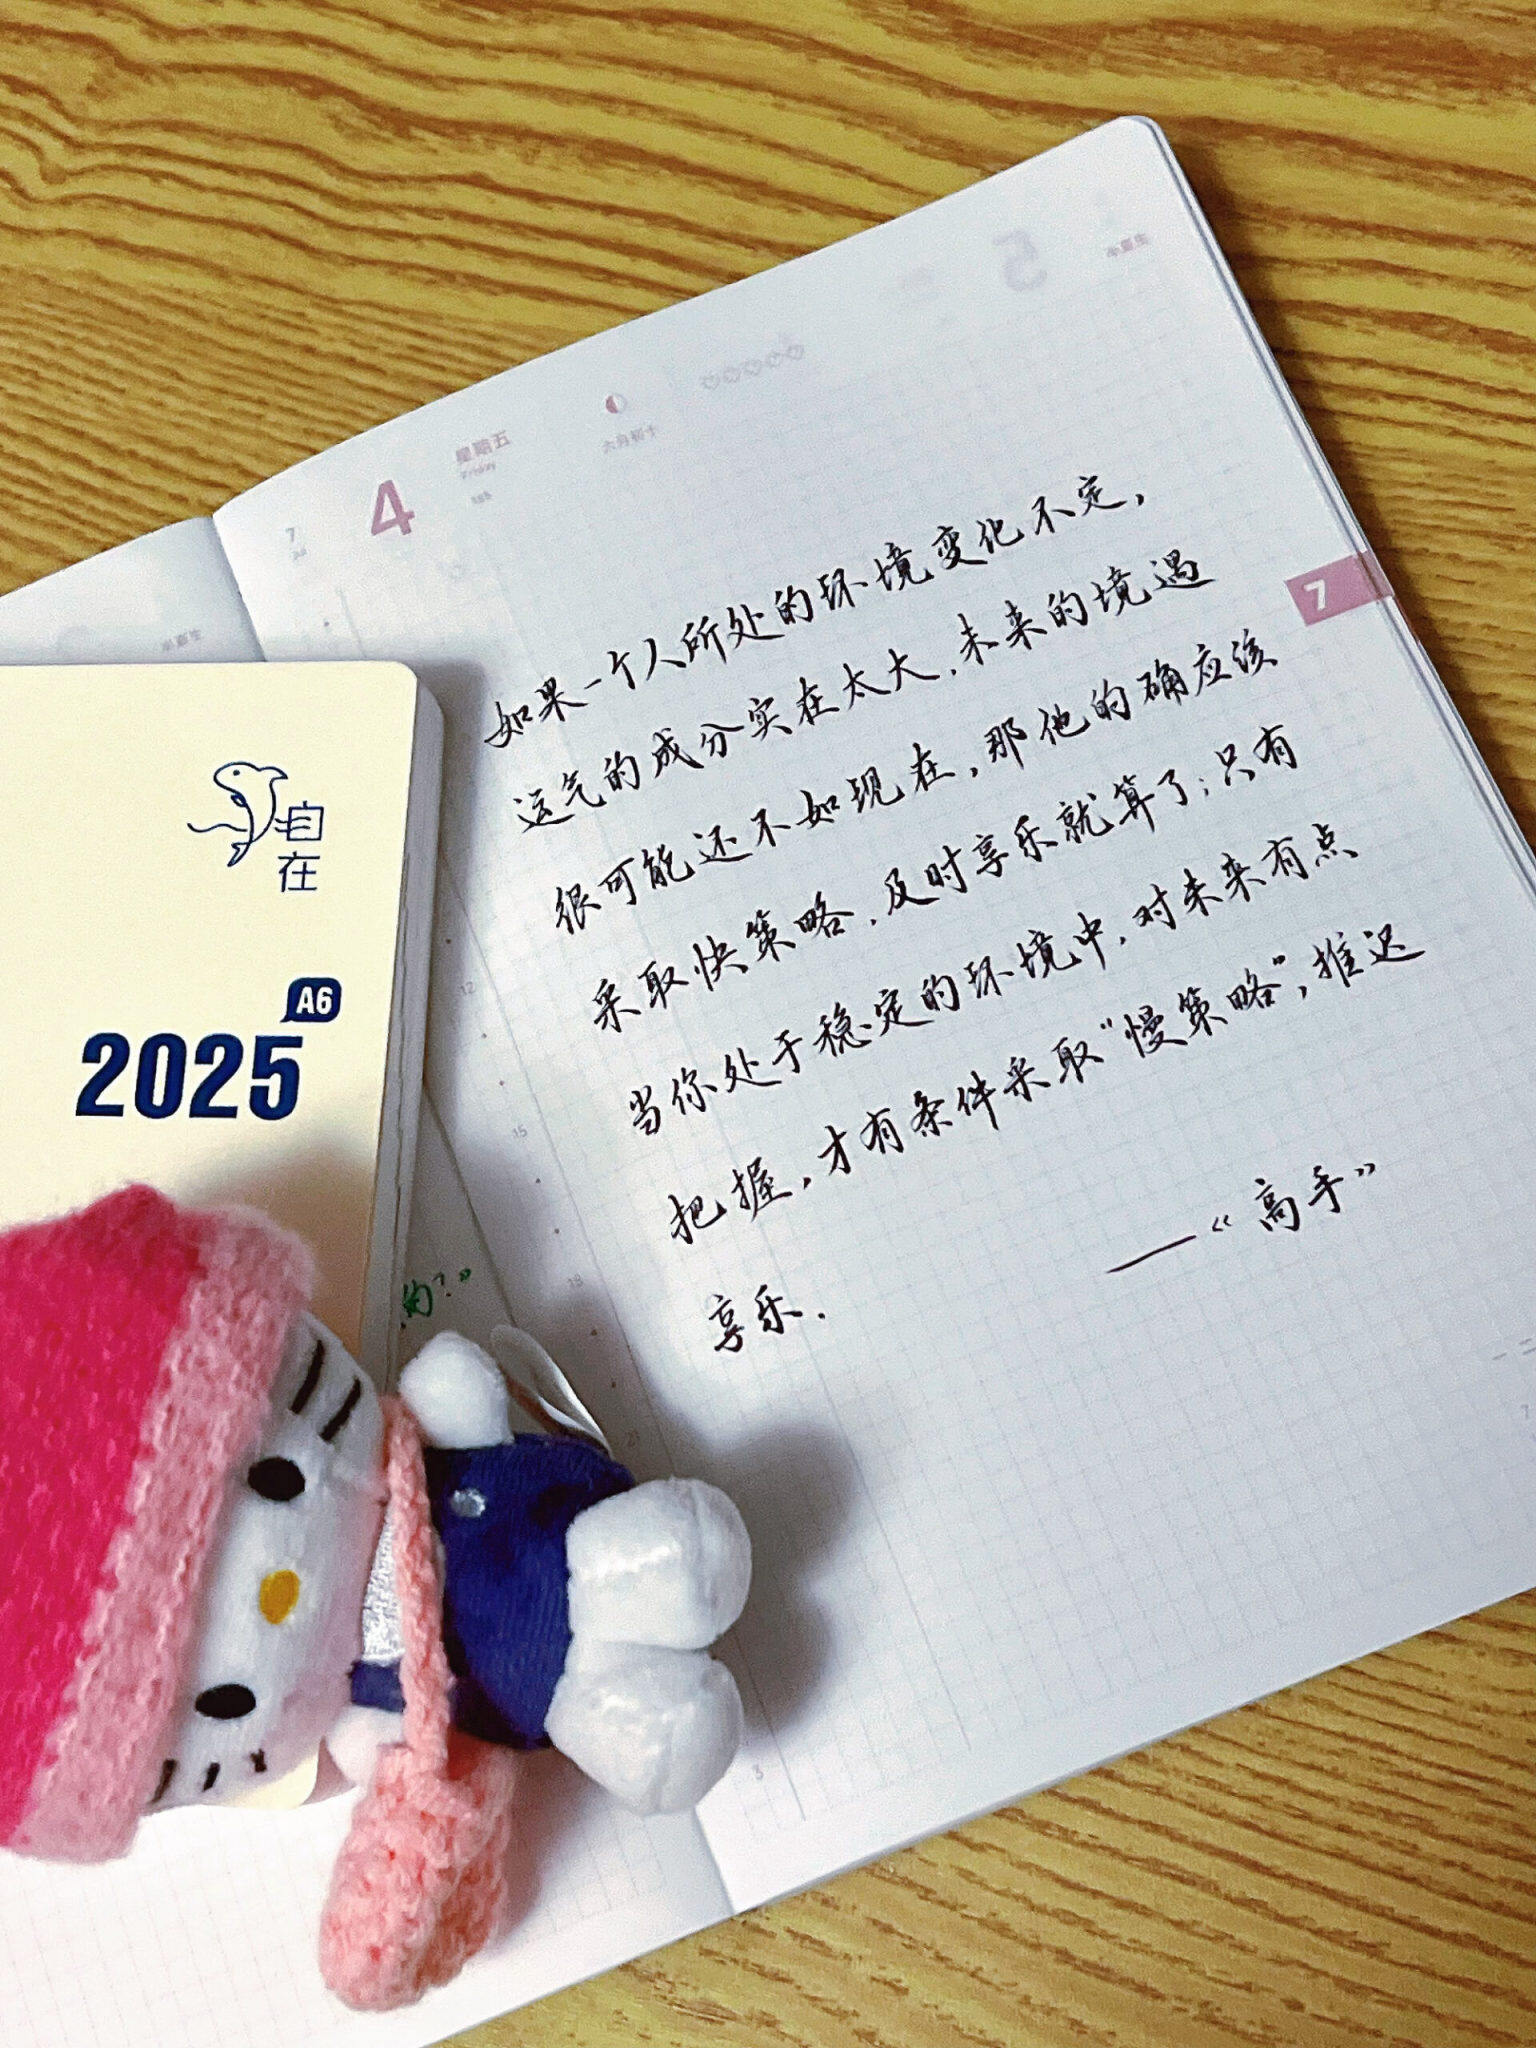 5
半夏生
4
星期五
Friday
185
六月初十
7
Jul
半夏生
7
如果一个人所处的环境变化不定，
运气的成分实在太大，未来的境遇
很可能还不如现在，那他的确应该
采取快策略，及时享乐就算了；只有
当你处于稳定的环境中，对未来有点
把握，才有条件采取“慢策略”，推迟
享乐．
——《高手》
自在
A6
2025
的？”
12
15
18
21
3
一 二